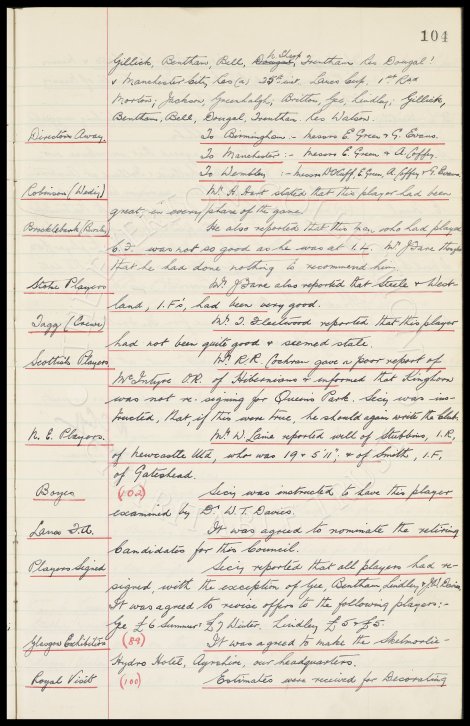 104
Gillick, Bentham, Bell, Dougal, N. Sharp, Trentham Res Dougal!
v Manchester City Res (a) 25th inst. Lancs Cup. 1st Rnd
Morton; Jackson, Greenhalgh; Britton, Gee, Lindley; Gillick,
Bentham, Bell, Dougal, Trentham Res Watson.
Directors Away. To Birmingham :- Messrs E. Green & G. Evans.
To Manchester :- Messrs E. Green & A. Coffey.
To Wembley :- Messrs W. Cuff, E. Green, A. Coffey & G. Evans.
Robinson (Wed'y) Mr. H. Hart stated that this player had been
great, in every phase of the game.
Brocklebank (Burnley) He also reported that this man, who had played
C.F. was not so good as he was at I.L. Mr J Fare
that he had done nothing to recommend him.
Stoke Players Mr J Fare also reported that Steele & West-
land, I.F's, had been very good.
Jaggy (Crewe) Mr. T. Fleetwood reported that this player
had not been quite good & seemed stale.
Scottish Players Mr. R.R. Cochran gave a poor report of
McIntyre O.R. of Hibernians & informed that Kinghorn
was not re-signing for Queens Park. Secy was ins-
tructed, that, if this were true, he should again write the Club.
N.E. Players. Mr. W. Laine reported well of Stubbins, I.R,
of Newcastle Utd, who was 19 & 5'11", & of Smith, I.F,
of Gateshead.
Boyes (102) Secy was instructed to have this player
examined by Dr W.T. Davies.
Lancs F.A. It was agreed to nominate the retiring
Candidates for this Council.
Players Signed Secy reported that all players had re-
signed, with the exception of Gee, Bentham, Lindley & J.W. Davies
It was agreed to revise offers to the following players :-
Gee £6 Summer £7 Winter, Lindley £5 & £5.
Glasgow Exhibition (84) It was agreed to make the Skelmorlie-
Hydro Hotel, Ayrshire, our headquarters.
Royal Visit (100) Estimates were received for Decorating